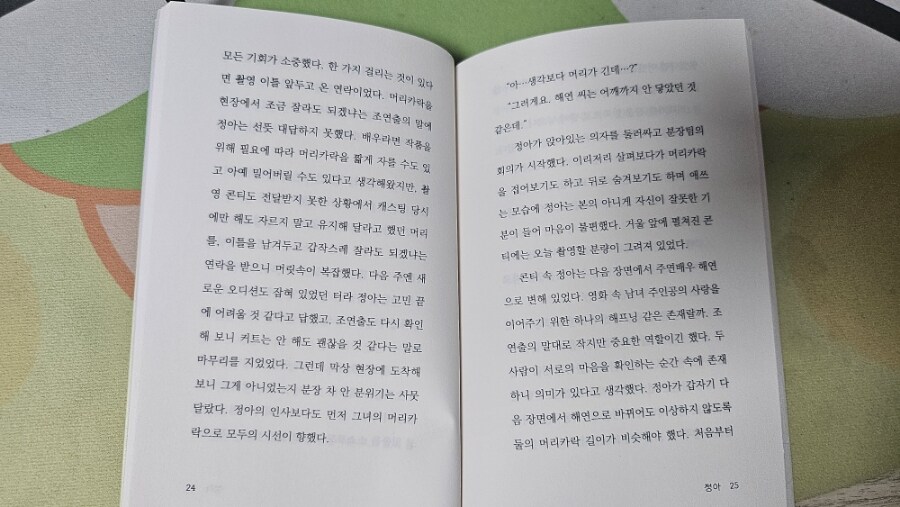 모든 기회가 소중했다. 한 가지 걸리는 것이 있다
면 촬영 이틀 앞두고 온 연락이었다. 머리카락을
현장에서 조금 잘라도 되겠냐는 조연출의 말에
정아는 선뜻 대답하지 못했다. 배우라면 작품을
위해 필요에 따라 머리카락을 짧게 자를 수도 있
고 아예 밀어버릴 수도 있다고 생각해왔지만, 촬
영 콘티도 전달받지 못한 상황에서 캐스팅 당시
에만 해도 자르지 말고 유지해 달라고 했던 머리
를, 이틀을 남겨두고 갑작스레 잘라도 되겠냐는
연락을 받으니 머릿속이 복잡했다. 다음 주엔 새
로운 오디션도 잡혀 있었던 터라 정아는 고민 끝
에 어려울 것 같다고 답했고, 조연출도 다시 확인
해 보니 커트는 안 해도 괜찮을 것 같다는 말로
마무리를 지었었다. 그런데 막상 현장에 도착해
보니 그게 아니었는지 분장 차 안 분위기는 사뭇
달랐다. 정아의 인사보다도 먼저 그녀의 머리카
락으로 모두의 시선이 향했다.
24
“아…생각보다 머리가 긴데…?”
“그러게요. 해연 씨는 어깨까지 안 닿았던 것
같은데.”
정아가 앉아있는 의자를 둘러싸고 분장팀의
회의가 시작했다. 이리저리 살펴보다가 머리카락
을 접어보기도 하고 뒤로 숨겨보기도 하며 애쓰
는 모습에 정아는 본의 아니게 자신이 잘못한 기
분이 들어 마음이 불편했다. 거울 앞에 펼쳐진 콘
티에는 오늘 촬영할 분량이 그려져 있었다.
콘티 속 정아는 다음 장면에서 주연배우 해연
으로 변해 있었다. 영화 속 남녀 주인공의 사랑을
이어주기 위한 하나의 해프닝 같은 존재랄까. 조
연출의 말대로 작지만 중요한 역할이긴 했다. 두
사람이 서로의 마음을 확인하는 순간 속에 존재
하니 의미가 있다고 생각했다. 정아가 갑자기 다
음 장면에서 해연으로 바뀌어도 이상하지 않도록
둘의 머리카락 길이가 비슷해야 했다. 처음부터
정아 25